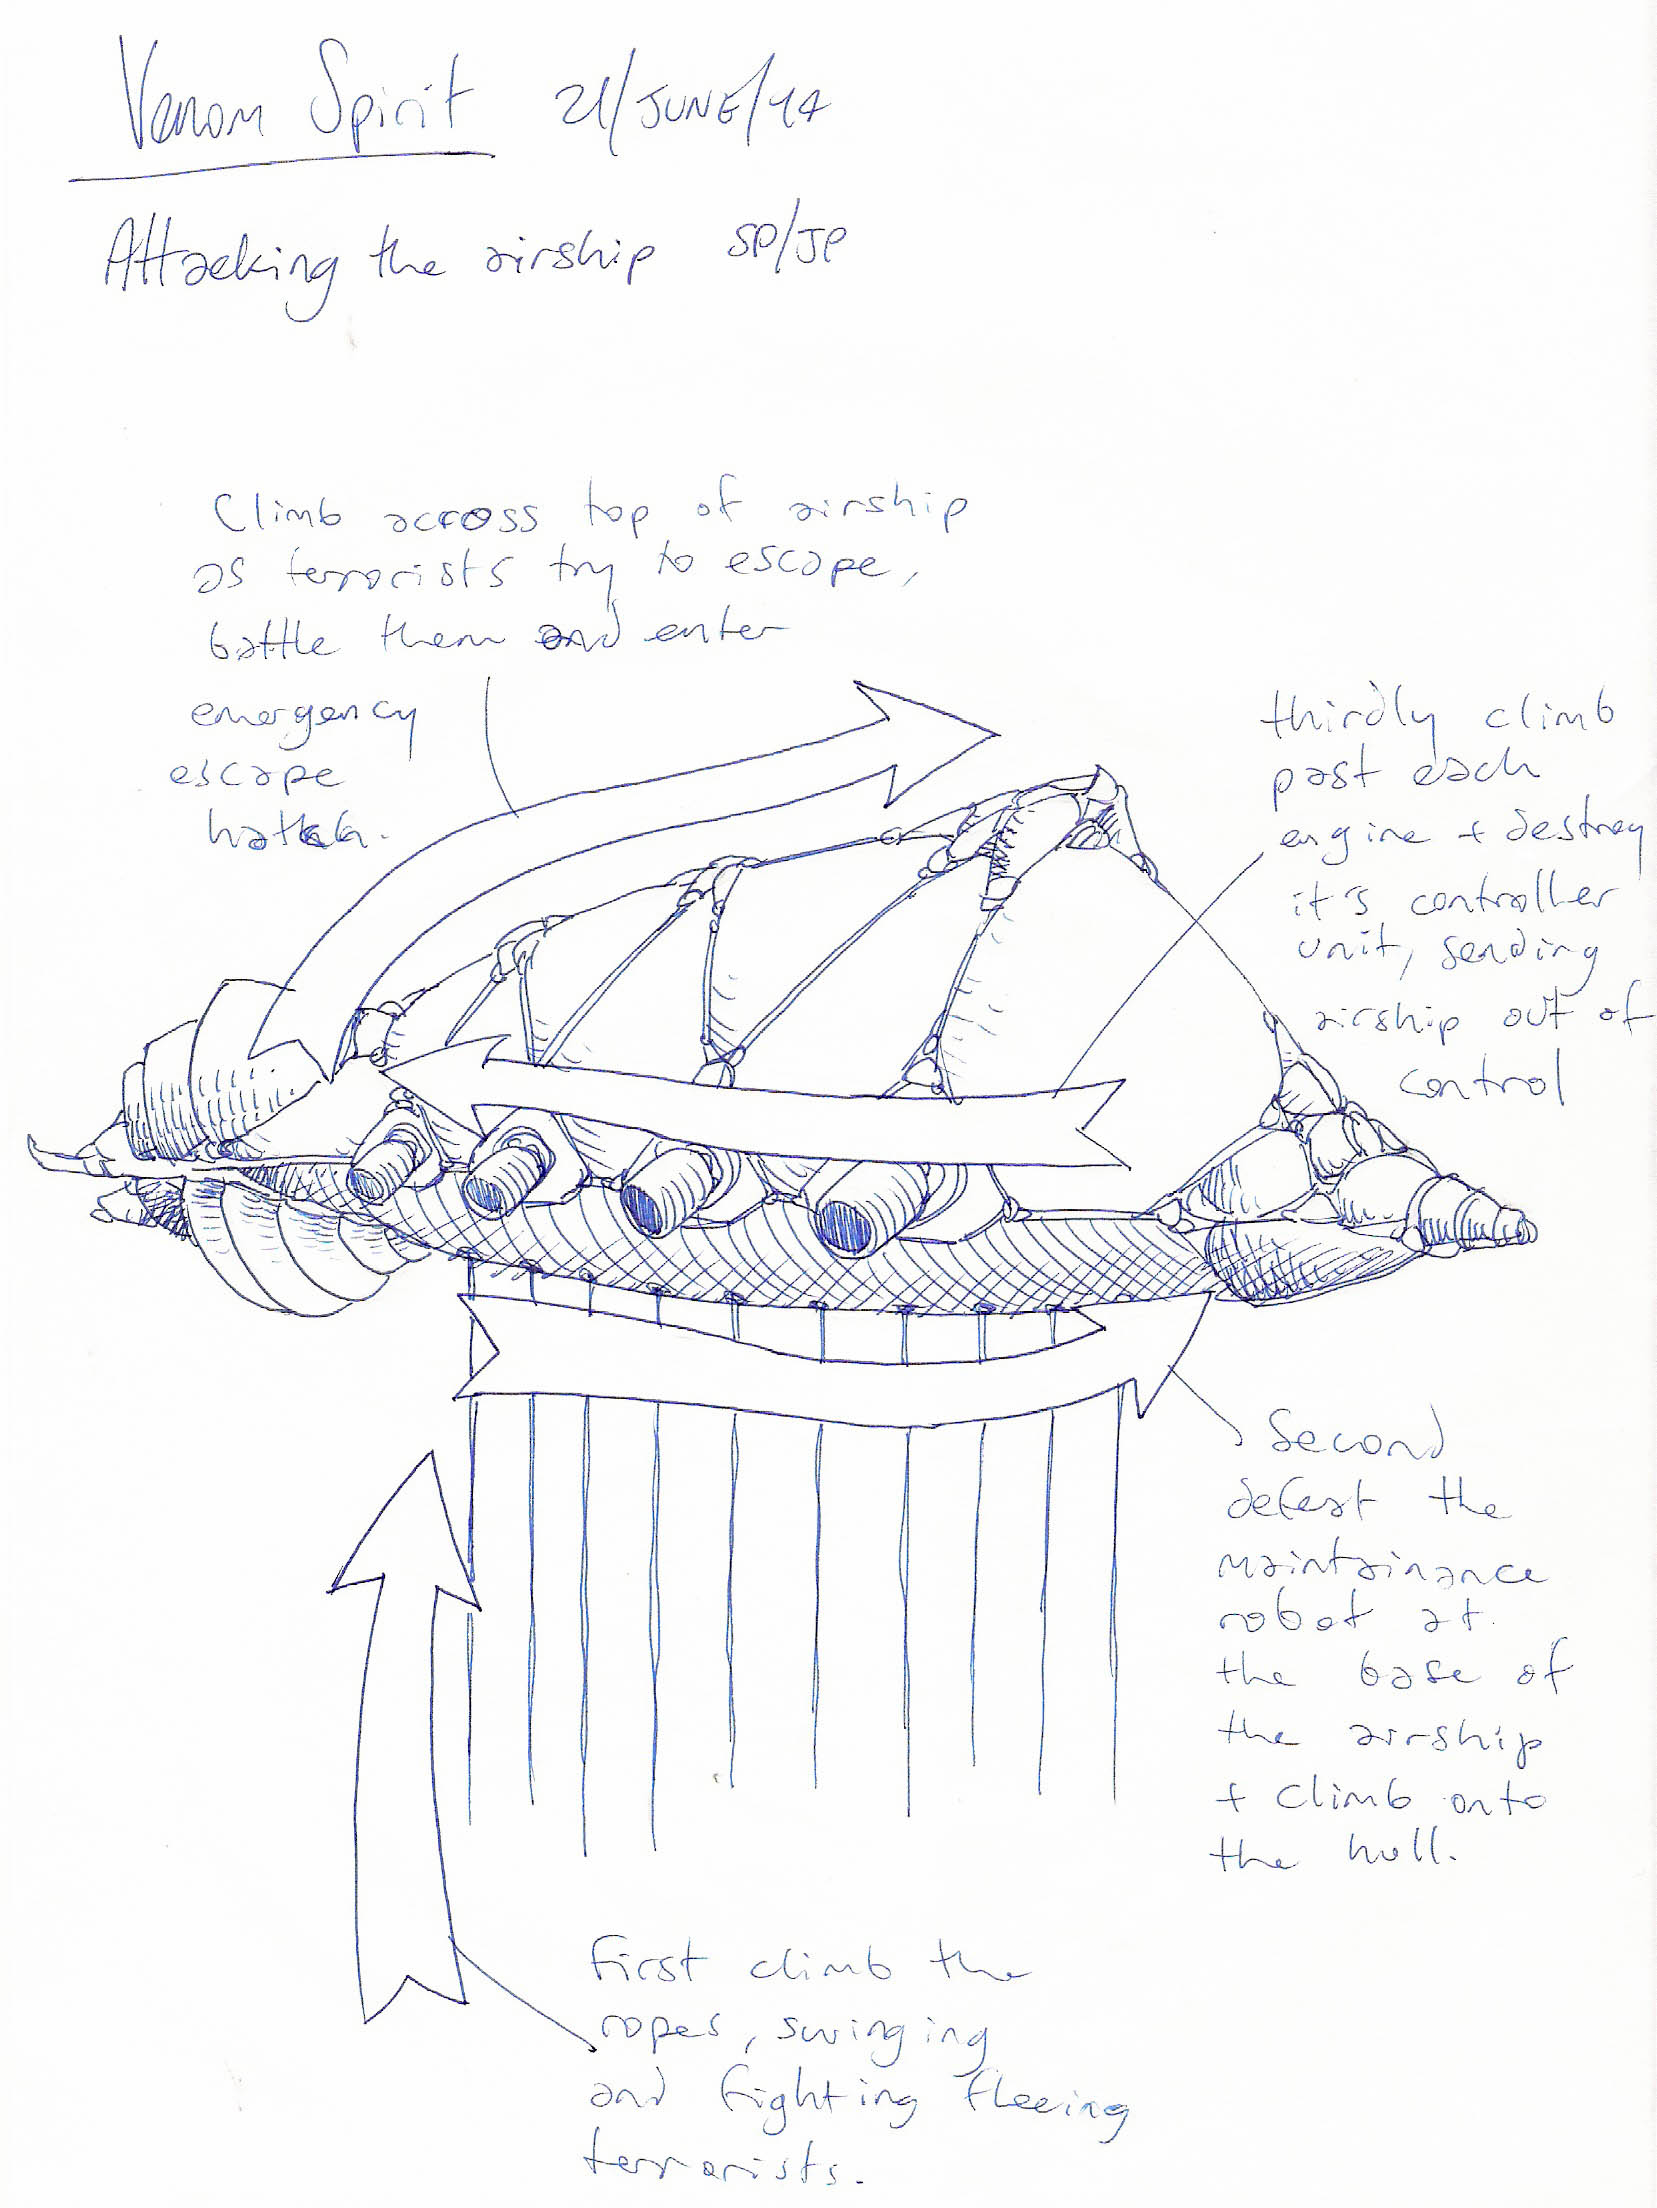 Venom Spirit 21/JUNE/94
Attacking the airship SP/JP
Climb across top of airship
as terrorists try to escape,
battle them and enter
emergency
escape
hatch.
thirdly climb
past each
engine + destroy
it's controller
unit, sending
airship out of
control
Second
defeat the
maintainance
robot at
the base of
the airship
+ climb onto
the hull.
First climb the
ropes, swinging
and fighting fleeing
terrorists.